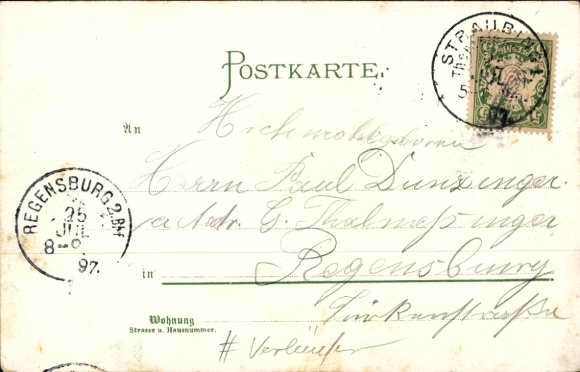 POSTKARTE.
STRAUBING 1
An
Hochwohlgeboren
Herrn Paul Dunzinger.
Adr. G. Thalmessinger
REGENSBURG 2. Bhf
25
JUL
8-9
97.
in Regensburg
Wohnung
Strasse u. Hausnummer.